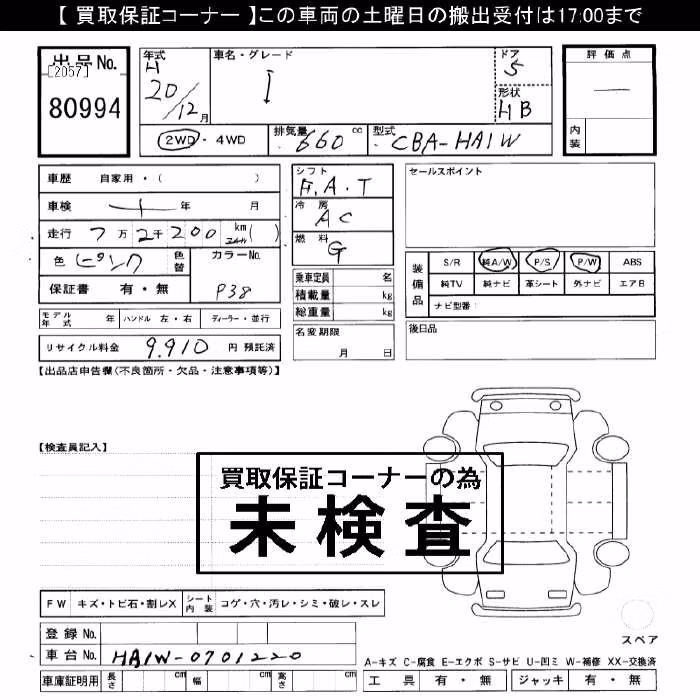 【 買取保証コーナー 】この車両の土曜日の搬出受付は17:00まで
出品No.
[2057]
80994
年式
H
20/12月
車名・グレード
I
ドア
5
形状
HB
評価点
―
内装
2WD・4WD
排気量 660 cc
型式 CBA-HA1W
車歴 自家用・( )
車検 年 月
走行 7万2千200 km ( )
色 ピンク 色替
カラーNo.
P38
保証書 有・無
モデル年式 年 ハンドル 左・右 ディーラー・並行
リサイクル料金 9,910 円 預託済
シフト
F.A.T
冷房
AC
燃料
G
乗車定員 名
積載量 kg
総重量 kg
名変期限
月 日
セールスポイント
装備品
S/R 純A/W P/S P/W ABS
純TV 純ナビ 革シート 外ナビ エアB
ナビ型番:
後日品
【出品店申告欄(不良箇所・欠品・注意事項等)】
【検査員記入】
買取保証コーナーの為
未検査
FW キズ・トビ石・割レX シート内装 コゲ・穴・汚レ・シミ・破レ・スレ
スペア
登録No.
車台No. HA1W-0701220
車庫証明用 長さ cm 幅 cm 高さ cm
A-キズ C-腐食 E-エクボ S-サビ U-凹ミ W-補修 XX-交換済
工具 有・無 ジャッキ 有・無